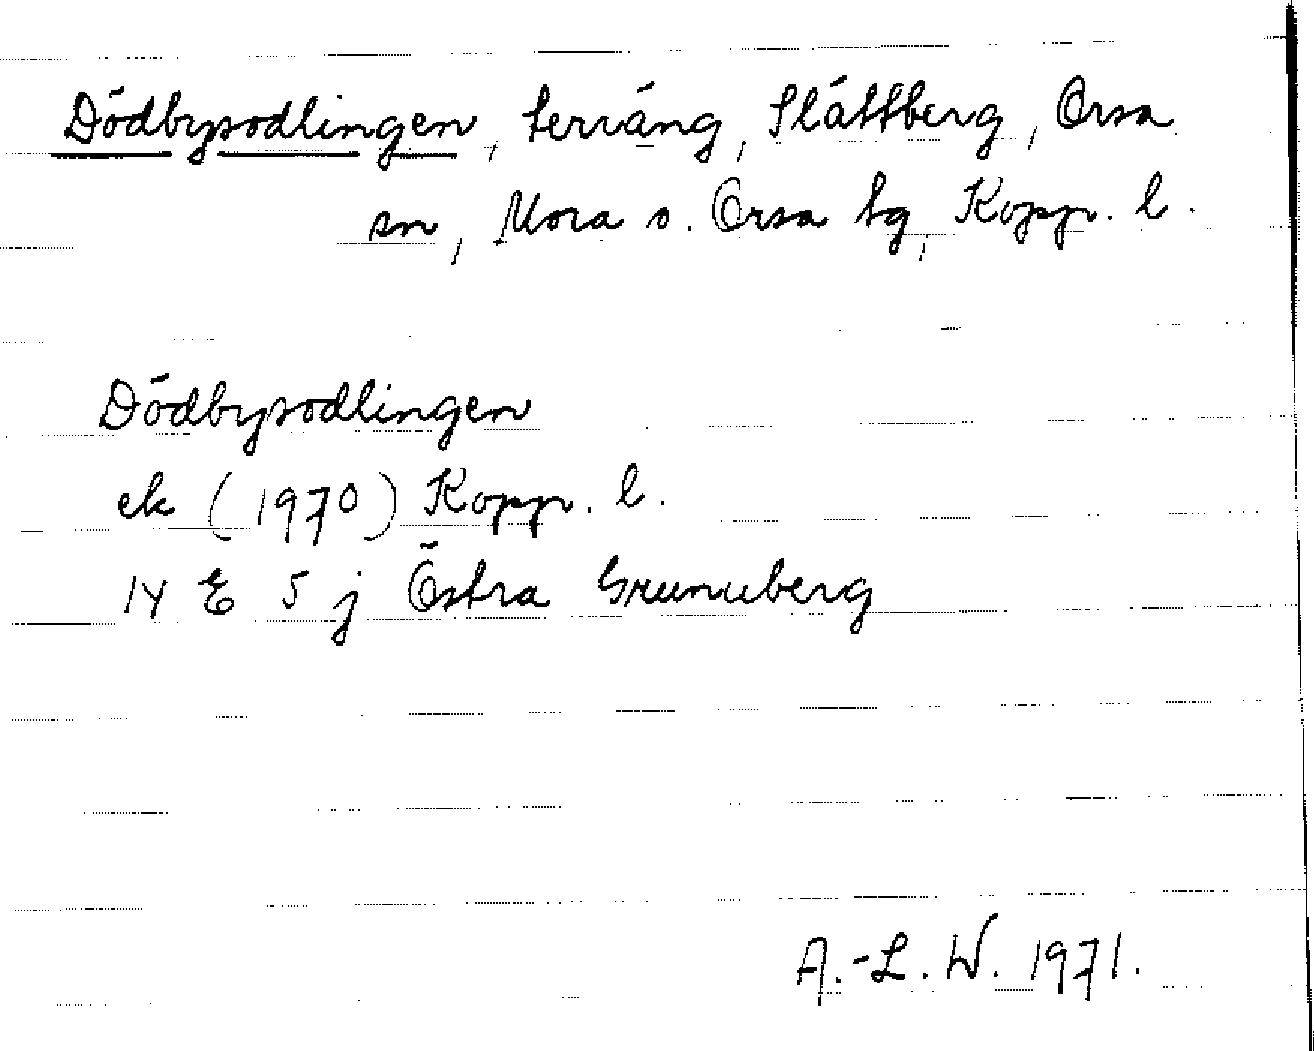 Dödbysodlingen, terräng, Slättberg, Orsa
sn, Mora o. Orsa tg, Kopp. l.
Dödbysodlingen
ek (1970) Kopp. l.
14 E 5 j Östra Grunuberg
A.-L. W. 1971.